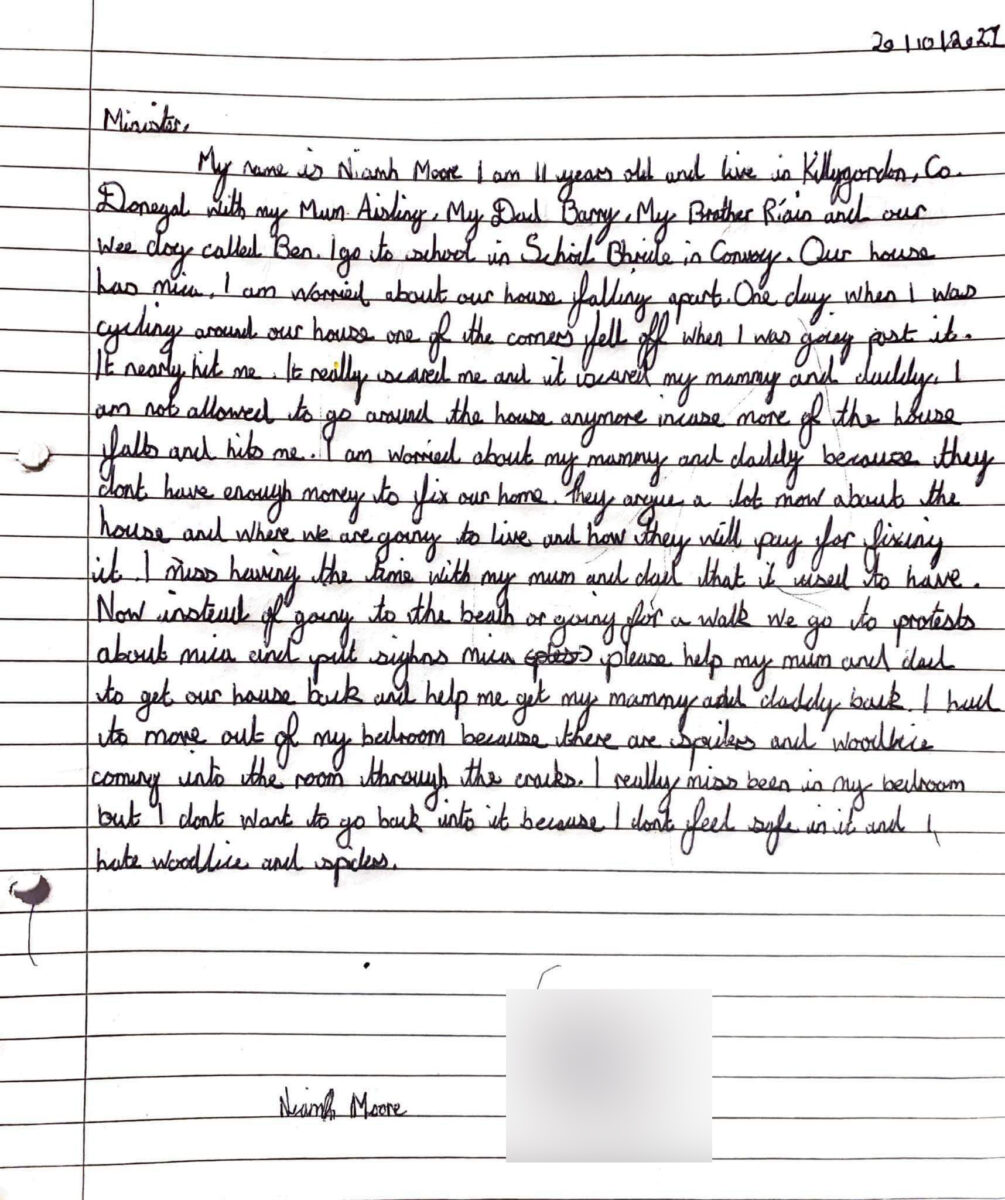 20/10/2021
Minister,
My name is Niamh Moore I am 11 years old and live in Killygordon, Co.
Donegal with my Mum Aisling, My Dad Barry, My Brother Ríain and our
wee dog called Ben. I go to school in Schoil Bhride in Convoy. Our house
has mica. I am worried about our house falling apart. One day when I was
cycling around our house one of the corners fell off when I was going past it.
It nearly hit me. It really scared me and it scared my mammy and daddy. I
am not allowed to go around the house anymore incase more of the house
falls and hits me. I am worried about my mammy and daddy because they
dont have enough money to fix our home. They argue a lot now about the
house and where we are going to live and how they will pay for fixing
it. I miss having the time with my mum and dad that it used to have.
Now instead of going to the beach or going for a walk we go to protests
about mica and put sighns mica please help my mum and dad
to get our house back and help me get my mammy and daddy back. I had
to move out of my bedroom because there are spiders and woodlice
coming into the room through the cracks. I really miss been in my bedroom
but I dont want to go back into it because I dont feel safe in it and I
hate woodlice and spiders.
Niamh Moore